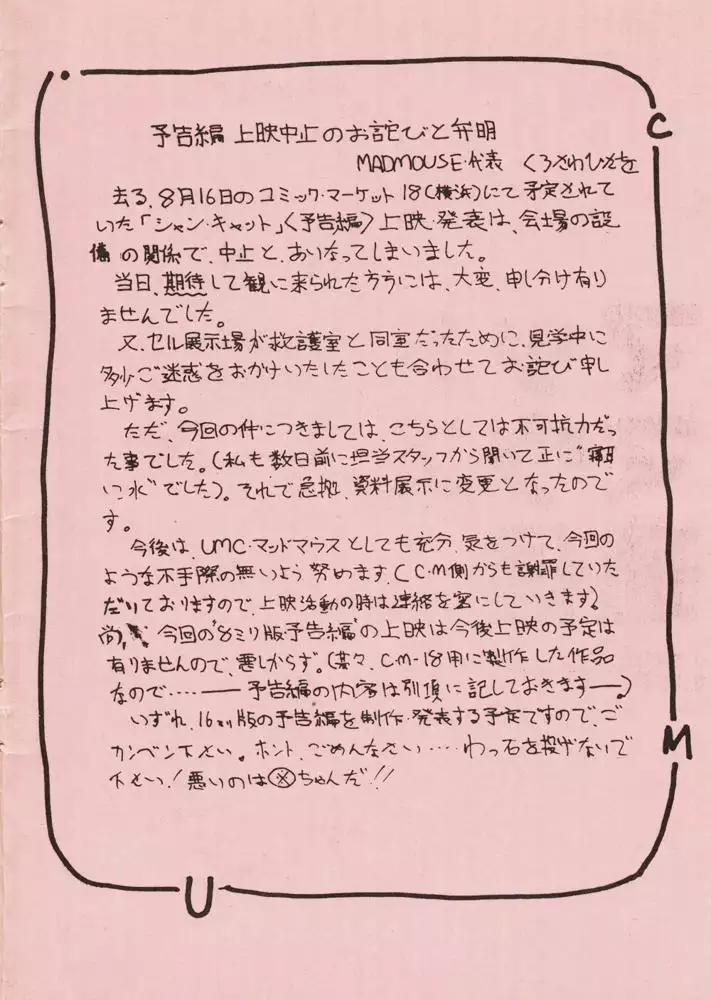 予告編 上映中止のお詫びと弁明
MADMOUSE・代表 くろさわひさを
去る、8月16日のコミック・マーケット18(横浜)にて予定されて
いた「シャン・キャット」〈予告編〉上映・発表は、会場の設
備の関係で、中止と、あいなってしまいました。
当日、期待して観に来られた方々には、大変、申し分け有り
ませんでした。
又、セル展示場が救護室と同室だったために、見学中に
多少ご迷惑をおかけいたしたことも合わせてお詫び申し
上げます。
ただ、今回の件につきましては、こちらとしては不可抗力だっ
た事でした。(私も数日前に担当スタッフから聞いて正に"寝耳
に水"でした)。それで急拠、資料展示に変更となったので
す。
今後は、UMC・マッドマウスとしても充分、気をつけて、今回の
ような不手際の無いよう努めます。(C・M側からも謝罪していた
だいておりますので、上映活動の時は連絡を密にしていきます)
尚、今回の"8ミリ版予告編"の上映は今後上映の予定は
有りませんので、悪しからず。(某々、CM-18用に製作した作品
なので‥‥‥――予告編の内容は別項に記しておきます――。)
いずれ、16ミリ版の予告編を制作・発表する予定ですので、ご
カンベン下さい。ホント、ごめんなさい‥‥わっ石を投げないで
下さい!悪いのは㊍ちゃんだ!!
C
M
U